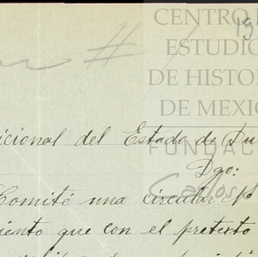 CENTRO
ESTUDIO
DE HISTOR
DE MEXIC
FUNDAC
Carlos
19
icional del Estado de Du
Dgo:
Comité una circular
iento que con el pretesto